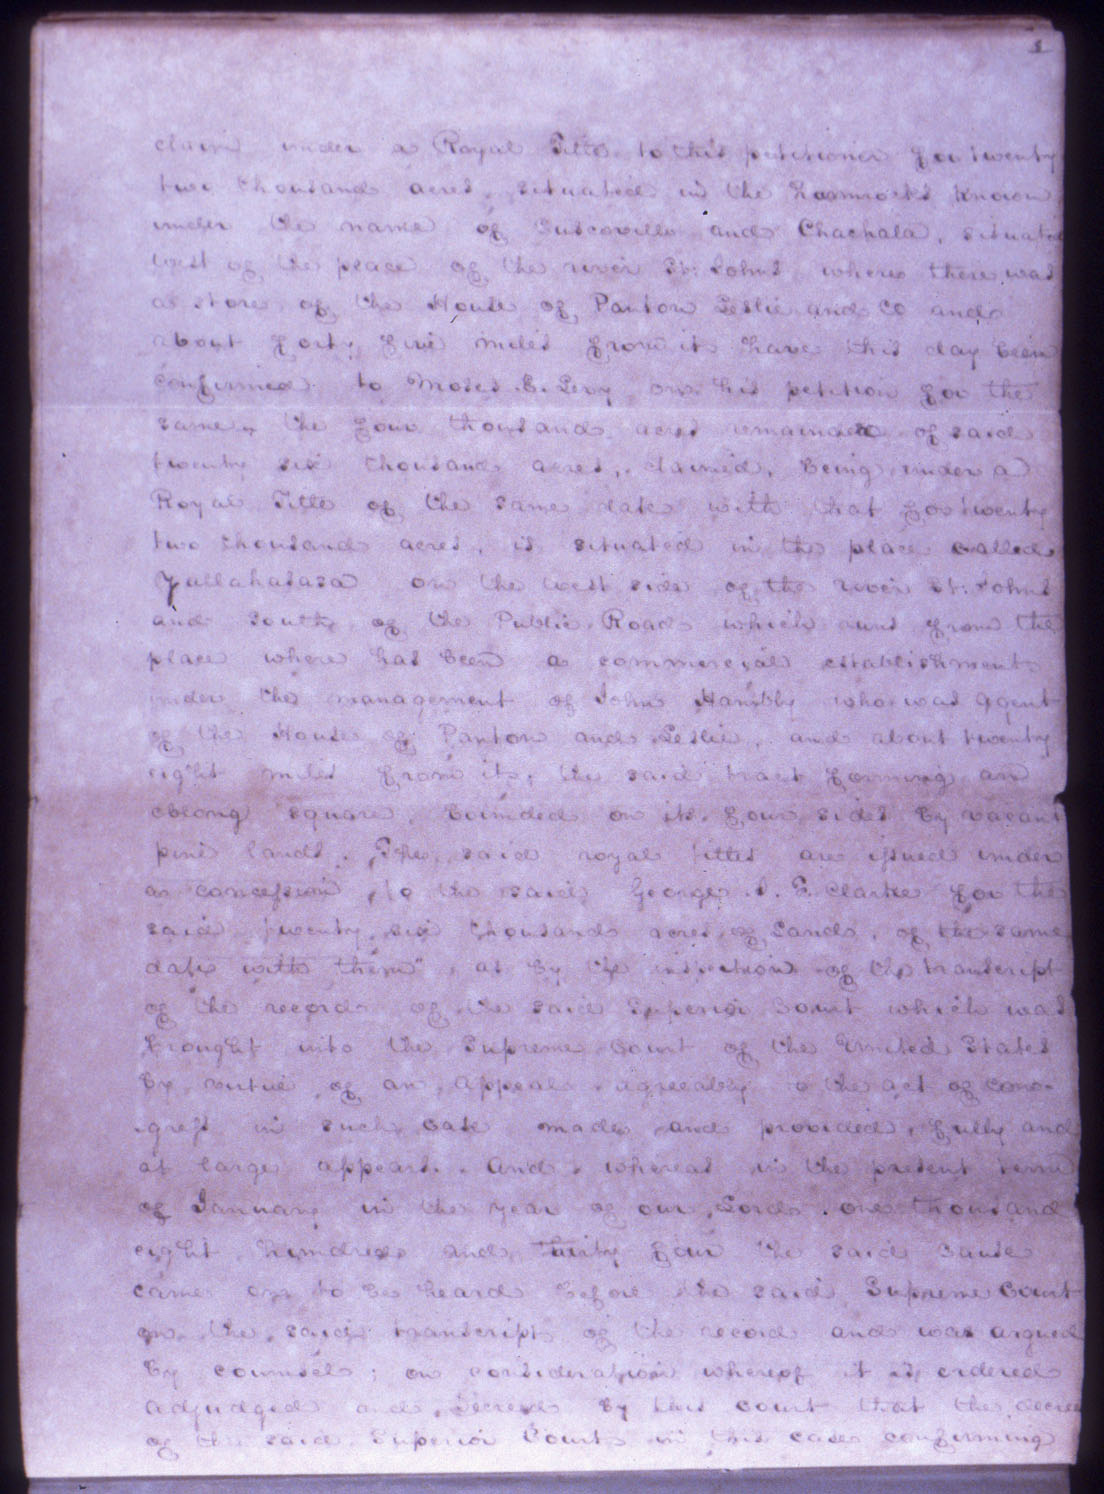 8
claim under a Royal Title to this petitioner for twenty
two thousand acres, situated in the Hammocks known
under the name of Cuscoville and Chachala, situated
West of the place of the river St. Johns where there was
a store of the House of Panton Leslie and Co and
about forty five miles from it have this day been
confirmed to Moses E. Levy on his petition for the
same, the four thousand acres remainder of said
twenty six thousand acres, claimed, being under a
Royal Title of the same date with that for twenty
two thousand acres, is situated in the place called
Yallahasasa on the West side of the river St. Johns
and South of the Public Road which runs from the
place where has been a commercial establishment
under the management of John Hambly who was Agent
of the House of Panton and Leslie, and about twenty
eight miles from it, the said tract forming an
oblong square, bounded on its four sides by vacant
pine lands. The said royal titles are issued under
a concession to the said George I. F. Clarke for the
said twenty six thousand acres of Land, of the same
date with them", as by the inspection of the transcript
of the record of the said Superior Court which was
brought into the Supreme Court of the United States
by virtue of an appeal agreeably to the act of Con-
gress in such case made and provided, fully and
at large appears. And whereas in the present term
of January in the year of our Lord one thousand
eight hundred and thirty four the said cause
came on to be heard before the said Supreme Court
on the said transcript of the record and was argued
by counsel; on consideration whereof it is ordered
adjudged and decreed by this court that the decree
of the said Superior Court in this case confirming